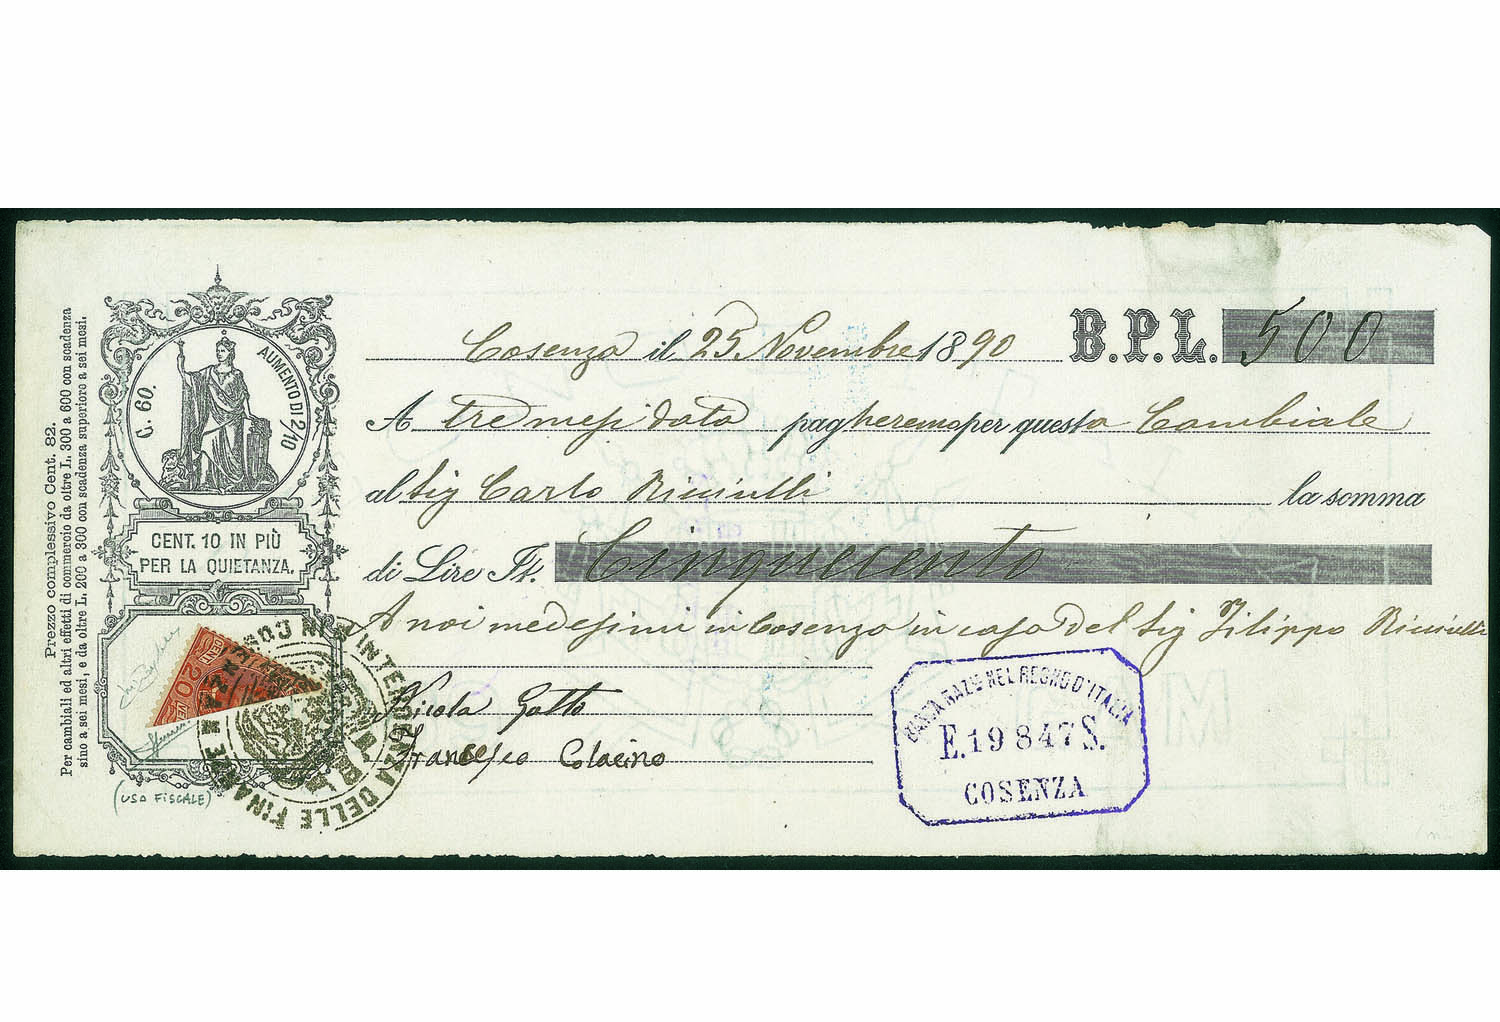 Prezzo complessivo Cent. 82.
Per cambiali ed altri effetti di commercio da oltre L. 300 a 600 con scadenza
sino a sei mesi, e da oltre L. 200 a 300 con scadenza superiore a sei mesi.
C. 60. AUMENTO DI 2/10
CENT. 10 IN PIÙ
PER LA QUIETANZA.
CENT. 20
(USO FISCALE)
INTENDENZA DELLE FINANZE IN
Cosenza il 25 Novembre 1890 B.P.L. 500
A tre mesi data pagheremo per questa Cambiale
al Sig Carlo Ricciulli la somma
di Lire It. Cinquecento
A noi medesimi in Cosenza in casa del Sig Filippo Ricciulli
Nicola Gatto
Francesco Colacino
BANCA NAZle NEL REGNO D'ITALIA
E. 19847 S.
COSENZA